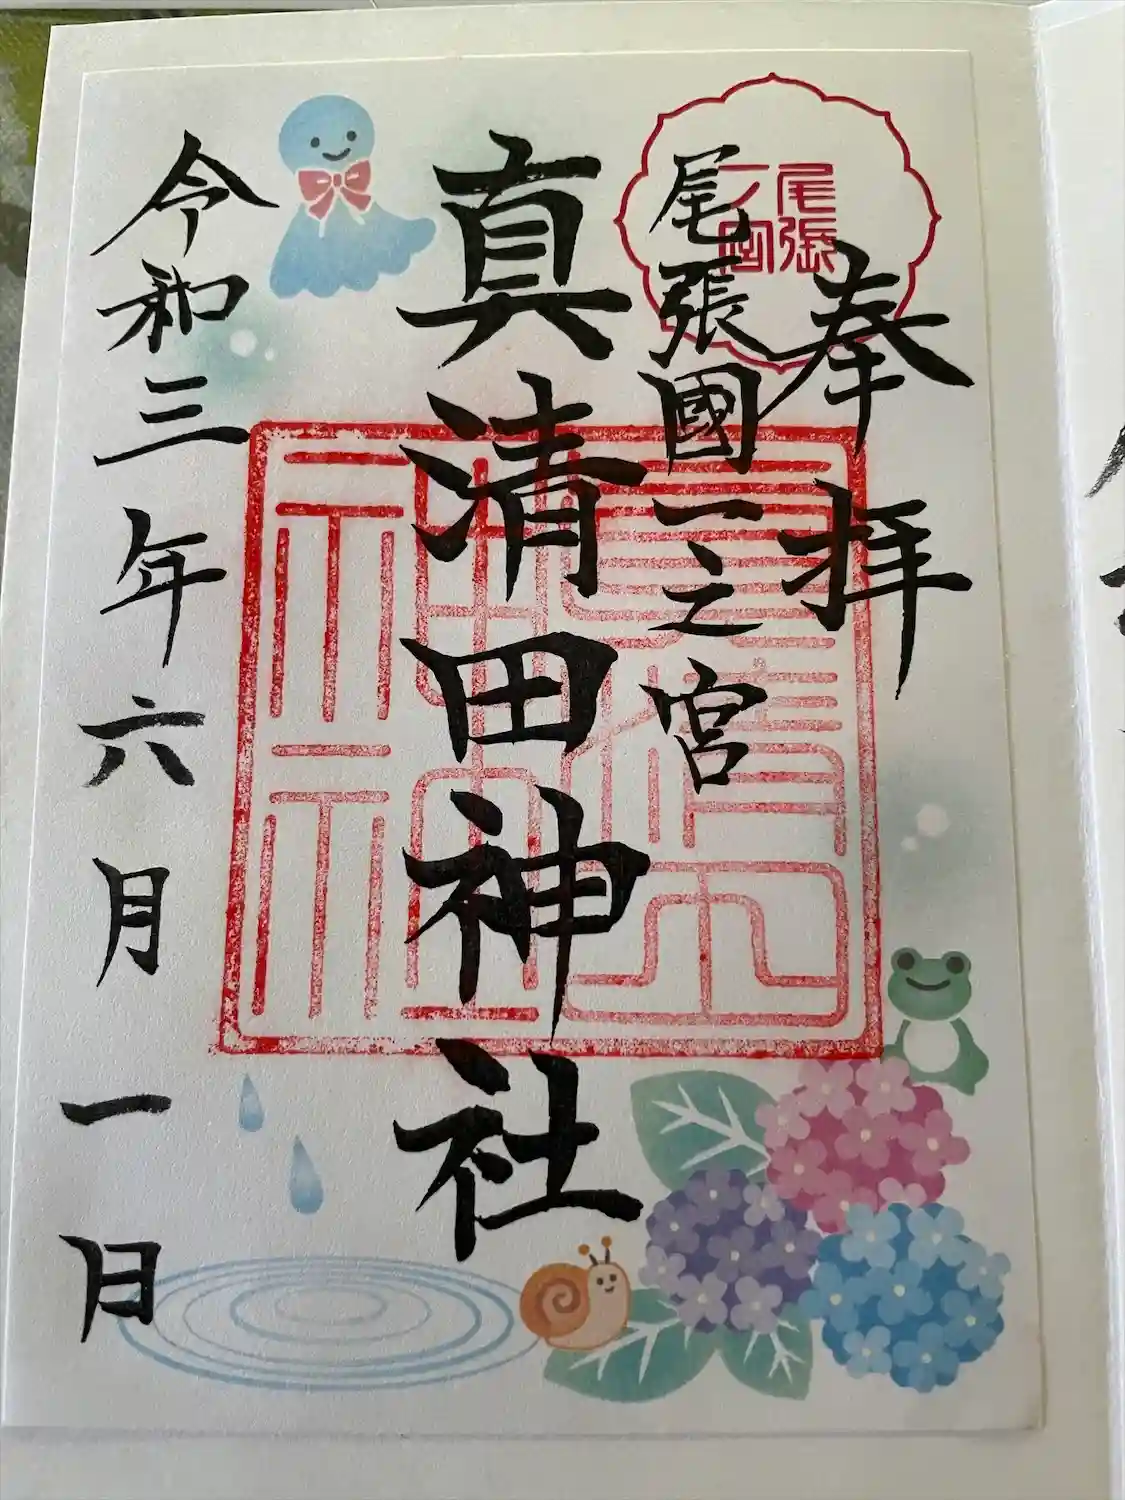 奉拝
尾張國一之宮
尾張
一ノ宮
真清田神社
令和三年六月一日